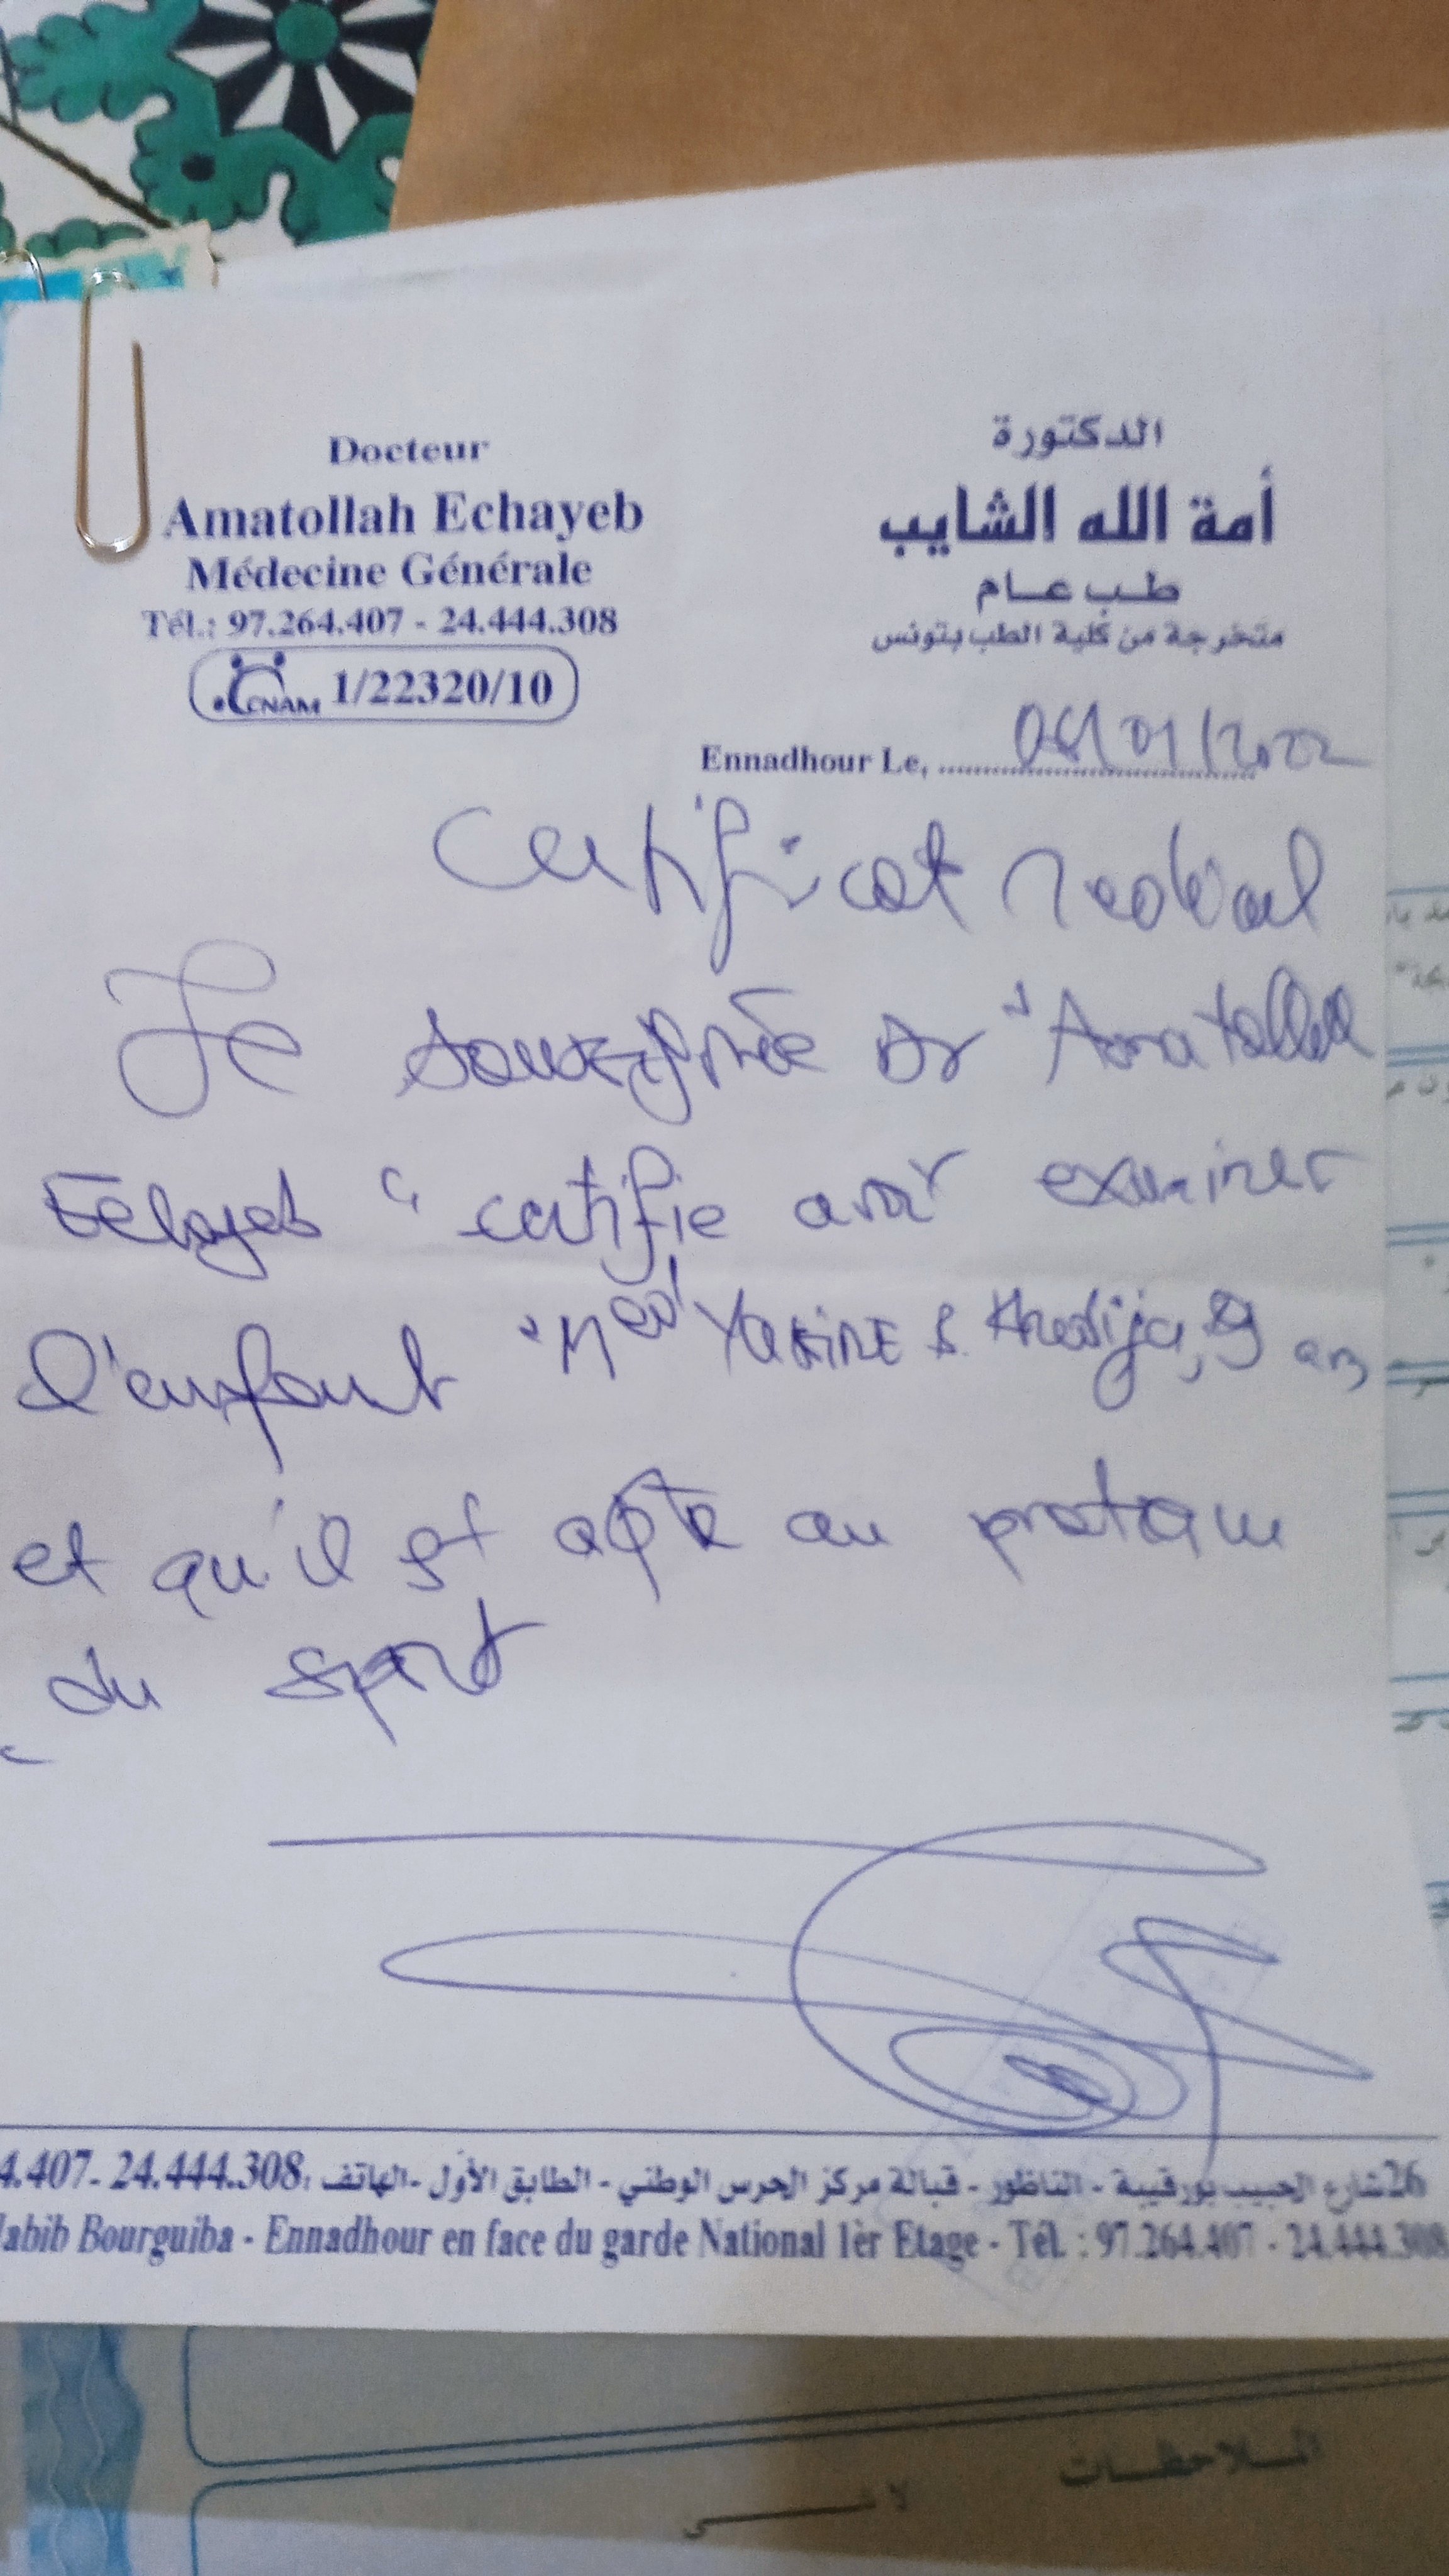 Docteur
Amatollah Echayeb
Médecine Générale
Tél.: 97.264.407 - 24.444.308
CNAM 1/22320/10
الدكتورة
أمة الله الشايب
طب عام
متخرجة من كلية الطب بتونس
Ennadhour Le, 08/01/2022
Certificat medical
Je soussignée Dr "Amatollah
Echayeb" certifie avoir examiner
l'enfant "Med Yassine B. Khedija, 9 ans
et qu'il est apte au
du sport
26 شارع الحبيب بورقيبة - الناظور - قبالة مركز الحرس الوطني - الطابق الأول - الهاتف : 24.444.308 -4.407
abib Bourguiba - Ennadhour en face du garde National 1èr Etage - Tél. : 97.264.407 - 24.444.308
الملاحظات